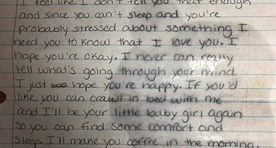 I feel like I don't tell you that enough
and since you can't sleep and you're
probably stressed about something I
need you to know that I love you. I
hope you're okay. I never can really
tell what's going through your mind.
I just hope you're happy. If you'd
like you can crawl in bed with me
and I'll be your little baby girl again
so you can find some comfort and
sleep. I'll make you coffee in the morning.